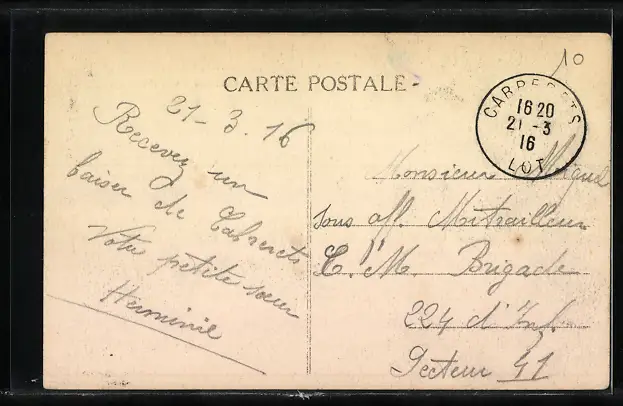 10
CARTE POSTALE
CABRERETS
16 20
21 -3
16
LOT
21-3.16
Recevez un
baiser de Cabrerets
Votre petite sœur
Herminie
Monsieur Miquel
Sous off. Mitrailleur
C. M. Brigade
224 d'Inf.
Secteur 41